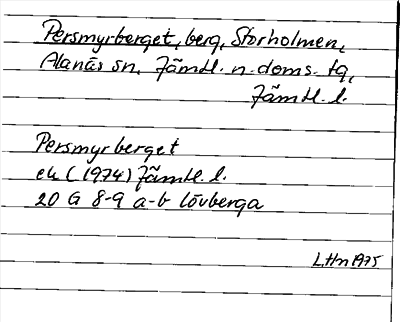 Persmyrberget, berg, Storholmen,
Alanäs sn, Jämtl. n. doms. tg,
Jämtl. l.
Persmyrberget
ek (1974) Jämtl. l.
20 G 8-9 a-b Lövberga
LHm 1975